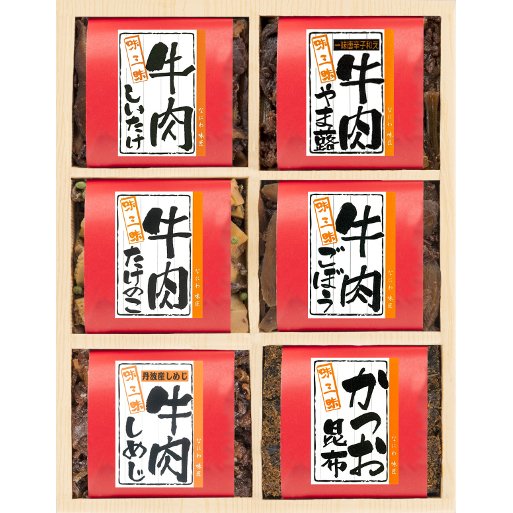 味三味
牛肉
しいたけ
なにわ 味匠
一味唐辛子和え
味三味
牛肉
やま蕗
なにわ 味匠
味三味
牛肉
たけのこ
なにわ 味匠
味三味
牛肉
ごぼう
なにわ 味匠
丹波産しめじ
味三味
牛肉
しめじ
なにわ 味匠
味三味
かつお
昆布
なにわ 味匠